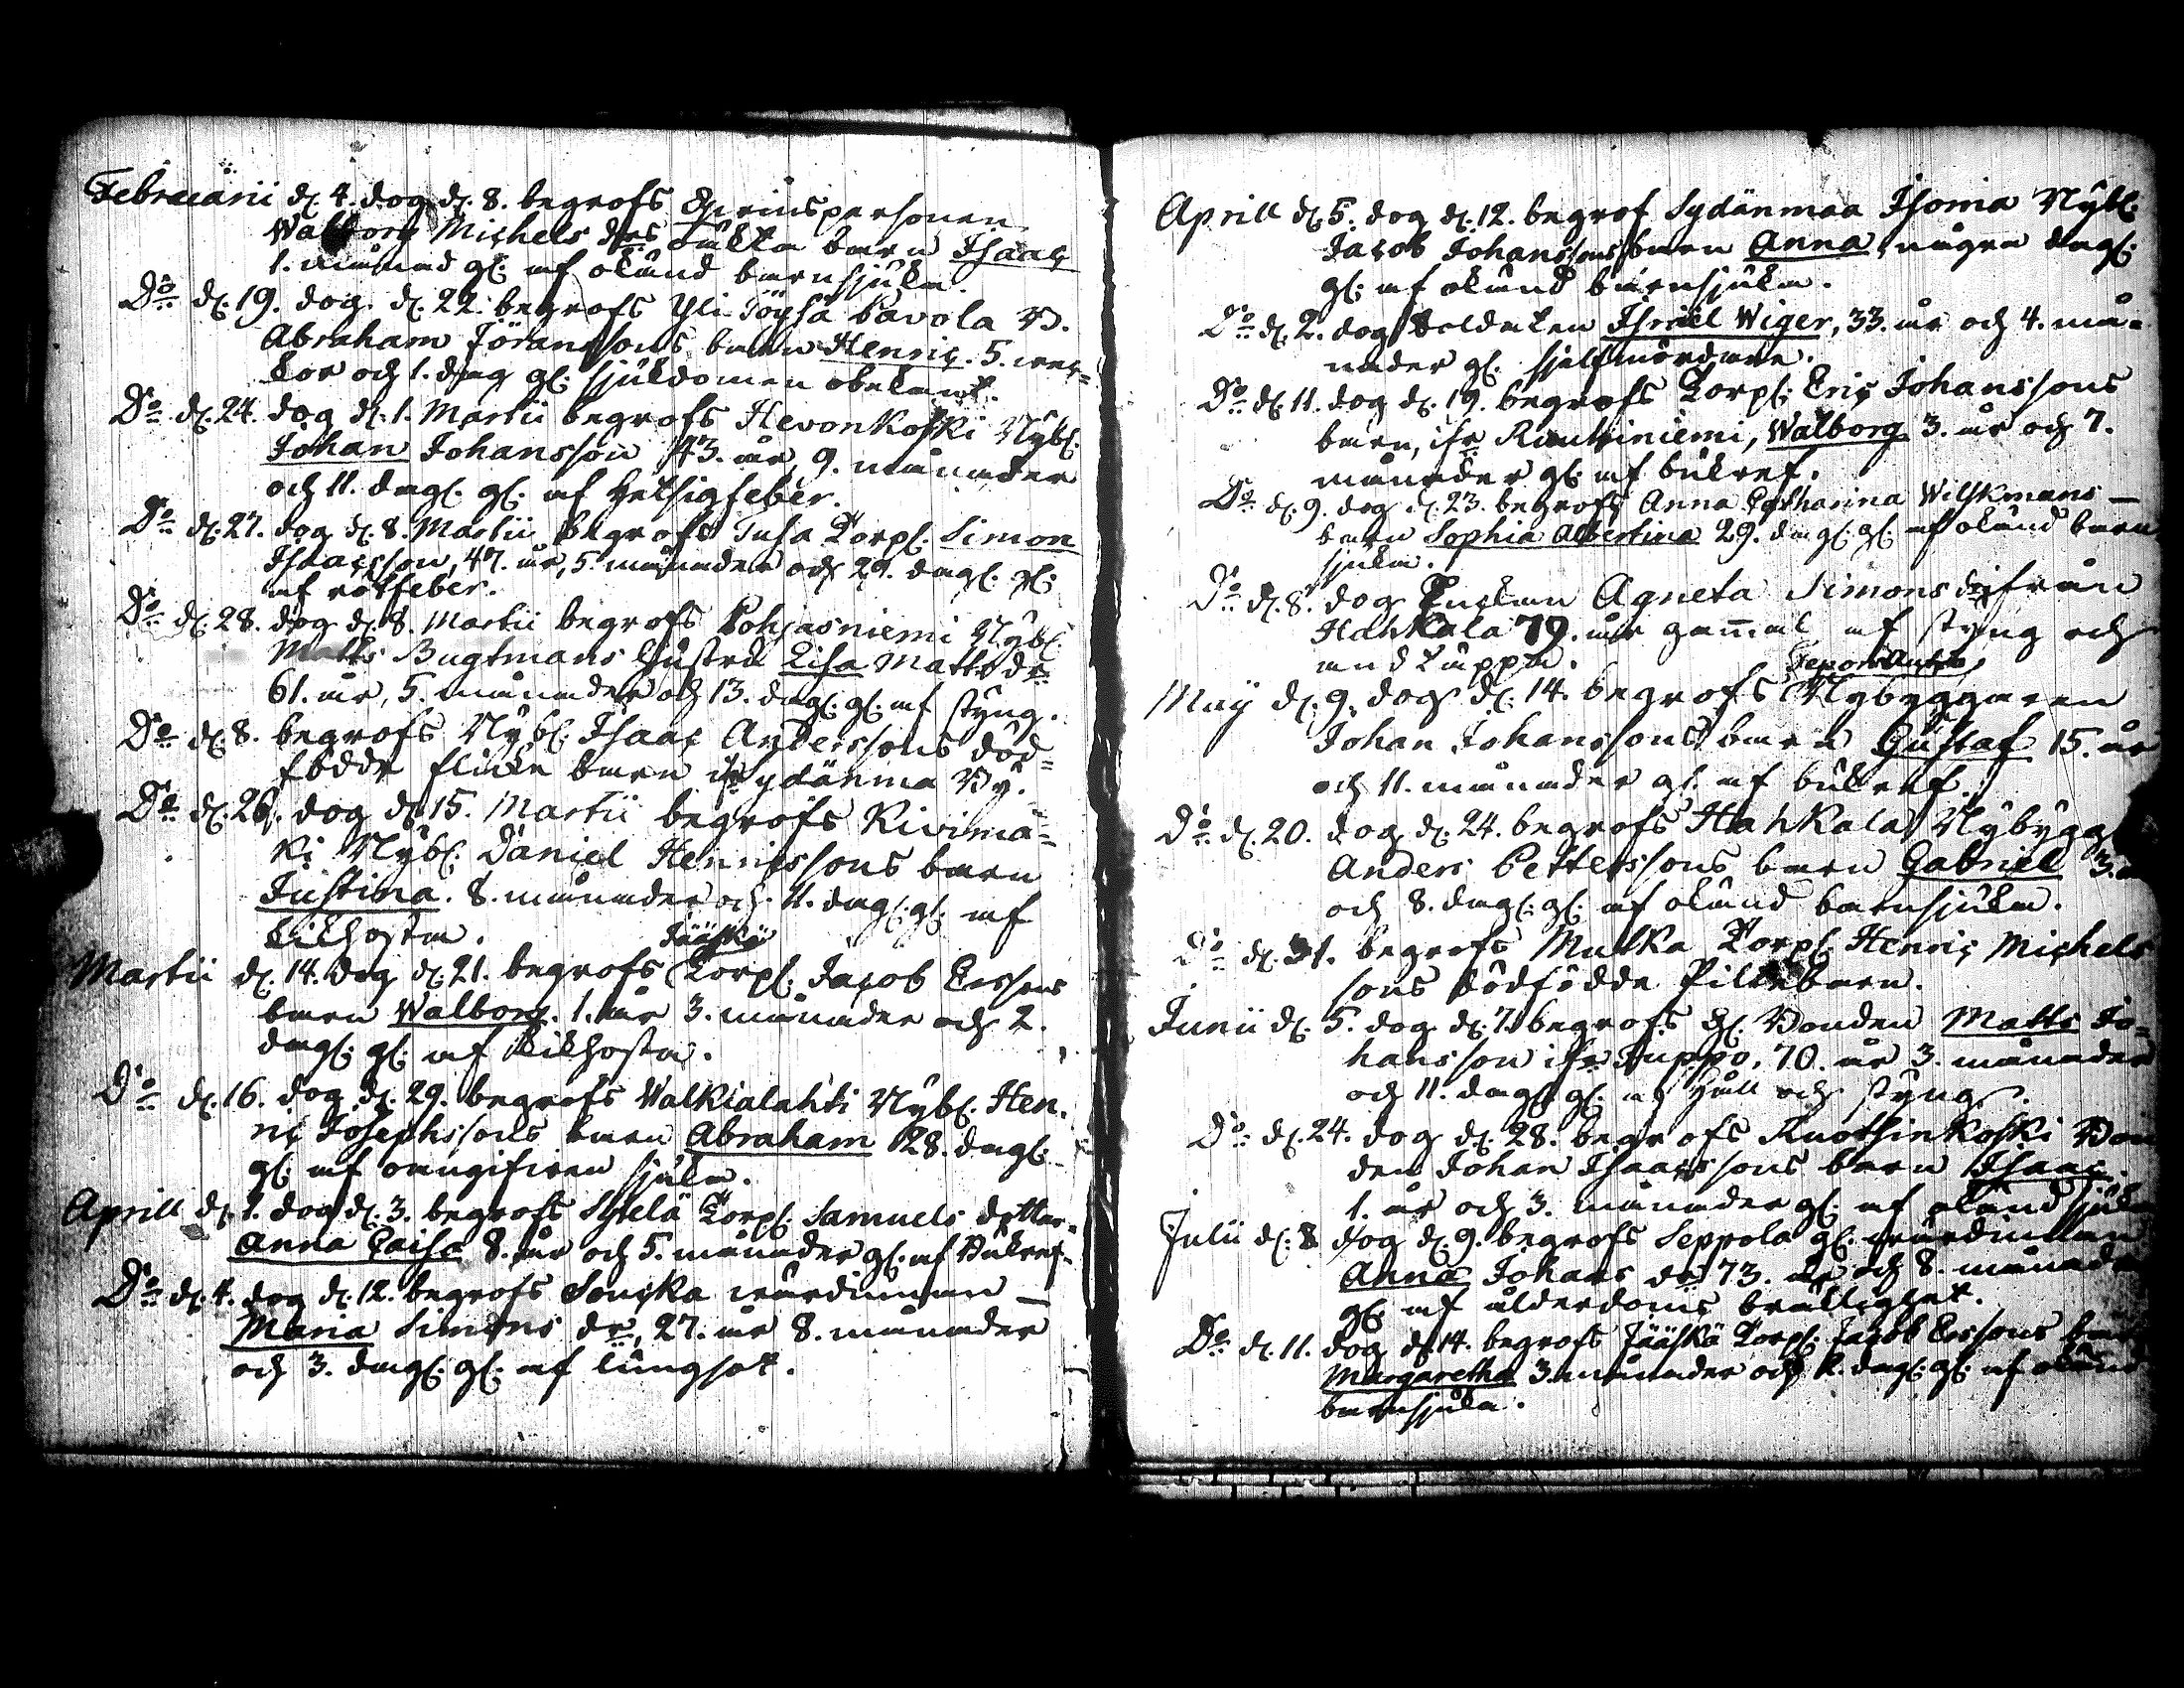 Februarii d. 4. dog d. 8. begrofs
Walborg Michels drs oäkta barn Isaac
1. månad gl: af okänd barnsjuka.
Do d. 19. dog d. 22. begrofs Yli Töysä Pavola B.
Abraham Jöranssons barn Henric. 5. wec-
kor och 1. dag gl: sjukdomen obekant.
Do d. 24. dog d. 1. Martii begrofs Hevonkoski Nybl:
Johan Johansson 43. år, 9. månader
och 11. dagl. gl: af hetsigfeber.
Do d. 27. dog d. 8. Martii begrofs Tusa Torpl. Simon
Isaacsson, 47. år, 5. månader och 29. dagl. gl:
af rötfeber.
Do d. 28. dog d. 8. Martii begrofs Pohjasniemi Nybl:
Matts Bugtmans hustru Lisa Matts dr
61. år, 5. månader och 13. dagl: gl: af styng.
Do d. 8. begrofs Nybl: Isaac Anderssons död-
födde flicke barn ifr Sydänma By.
Do d. 26. dog d. 15. Martii begrofs Kivimä-
ki Nybl: Daniel Henricssons barn
Justina. 8. månader och 4. dagl: gl: af
kikhosta.
Jääskä
Martii d. 14. dog d. 21. begrofs Torpl: Jacob Erssons
barn Walborg. 1. år 3. månader och 2.
dagl: gl: af kikhosta.
Do d. 16. dog d. 29. begrofs Valkialahti Nybl: Hen-
ric Josephssons barn Abraham 28. dagl:
gl: af onngifwen sjuka.
Aprill d. 1. dog d. 3. begrofs Torpl: Samuels dotter
Anna Caisa 8. år och 5. månader gl: af Bukref.
Do d. 4. dog d. 12. begrofs Soucka wärdinnan
Maria Simons dr, 27. år 8. månader
och 3. dagl: gl: af lungsot.
Aprill d. 5. dog d. 12. begrof Sydänmaa Isoma Nybl:
Jacob Johanssons barn Anna, några dagl:
gl: af okänd barnsjuka.
Do d. 2. dog Soldaten Israel Wiger, 33. år och 4. må-
nader gl. sjelfmördare.
Do d. 11. dog d. 19. begrofs Torpl: Eric Johanssons
barn, ifr Rautiniemi, Walborg 3. år och 7.
månader gl: af bukref.
Do d. 9. dog d. 23. begrofs Anna Catharina Wilskmans
barn Sophia Albertina 29. dagl: gl: af okänd barn
sjuka.
Do d. 8. dog Enckan Agneta Simons dr ifrån
Hahkala 79. år gammal af styng och
andtäppa.
May d. 9. dog d. 14. begrofs Nybyggaren
Johan Johanssons barn Gustaf 15. år
och 11. månader gl. af bukref.
Do d. 20. dog d. 24. begrofs Hahkala Nybygg
Anders Petterssons barn Gabriel 3.
och 8. dagl: gl: af okänd barnsjuka.
Do d. 31. begrofs Mulka Torpl: Henric Michels
sons dödfödde Piltebarn.
Junii d. 5. dog d. 7. begrofs gl. Bonden Matts Jo-
hansson ifr Luppo, 70. år 3. månader
och 11. dagl: gl: af håll och styng.
Do d. 24. dog d. 28. begrofs Ruotsinkoski Bon
den Johan Isaacssons barn Isaac
1. år och 3. månader gl: af okänd sjuka
Julii d. 8 dog d. 9. begrofs Seppola gl. wärdinnan
Anna Johans dr 73. år och 8. månader
gl: af ålderdoms bräklighet.
Do d. 11. dog d. 14. begrofs Jääskä Torpl: Jacob Erssons barn
Margaretha 3. månader och 2. dagl: gl: af okänd
barnsjuka.